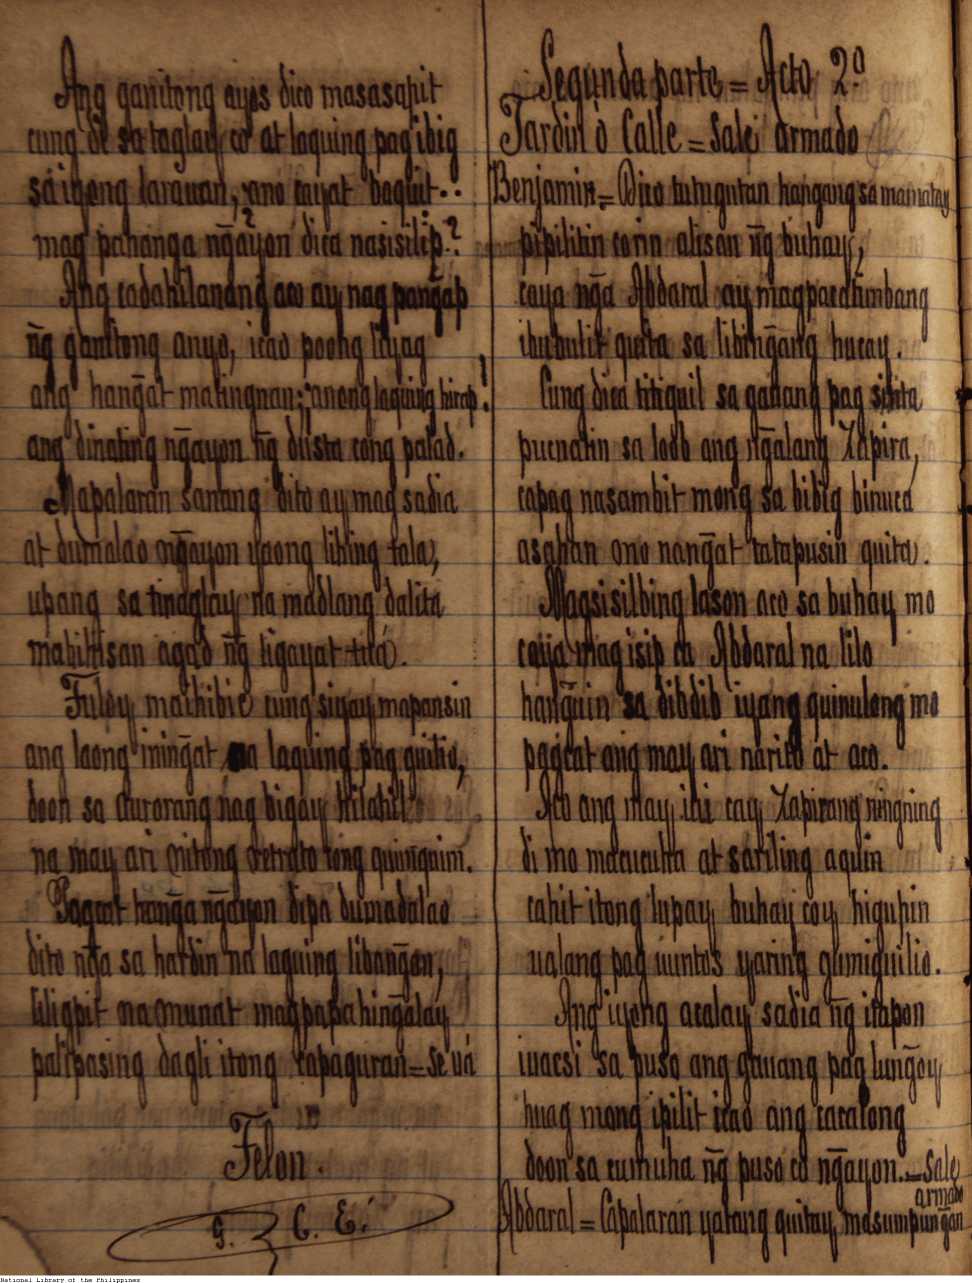 Ang ganitong ayos dico masasapit
cung di sa taglay co at laquing pag ibig
sa iyong larauan, ano cayat baquit..
mag pahanga n̄gayon dica nasisilip.?
Ang cadahilanang aco ay nag pan̄gap
n̄g ganitong anyo, icao poong liyag
ang han̄gat matingnan; anong laquing hirap!
ang dinating n̄gayon n̄g dusta cong palad.
Mapalaran sanang dito ay mag sadia
at dumalao n̄gayon yaong libing tala,
upang sa tinaglay na madlang dalita
mahihtisan agad n̄g ligayat tua.
Tuloy maihibic cung siyay mapansin
ang laong inin̄gat sa laquing pag guilio,
doon sa aurorang nag bigay hilahil
na may ari nitong retrato cong quim̄quim.
Sagcat han̄ga n̄gayon dipa dumadalao
dito n̄ga sa hardin na laguing liban̄gan,
liligpit na munat magpapahin̄galay
palipasing dagli itong capaguran = Se vá
Telon.
G. C. E.
Segunda parte = Acto 2º
Jardin ò Calle = Sale armado
Benjamin = Dito tutugutan hangang sa mamatay
pipilitin corin alisan n̄g buhay,
caya n̄ga Abdaral ay magpacatimbang
ibubulit quita sa libin̄gang hucay.
Cung dica titiguil sa gauang pag sinta
pucnatin sa loob ang n̄galang Zapira,
capag nasambit mong sa bibig binuca
asahan ono nan̄gat tatapusin quita.
Magsisilbing lason aco sa buhay mo
caya mag isip ca Abdaral na lilo
han̄guin sa dibdib iyang quinulong mo
pagcat ang may ari narito at aco.
Aco ang may ibi cay Zapirang ningning
di mo macucuha at sariling aquin
cahit itong lupay, buhay coy higupin
ualang pag uuntos yaring gumiguilio.
Ang iyong acalay sadia n̄g itapon
iuacsi sa puso ang gauang pag lun̄goy
huag mong ipilit icao ang cacatong
doon sa cumuha n̄g puso co n̄gayon. = Sale
armado
Abdaral = Capalaran yatang quitay masumpun̄gan
National Library of the Philippines